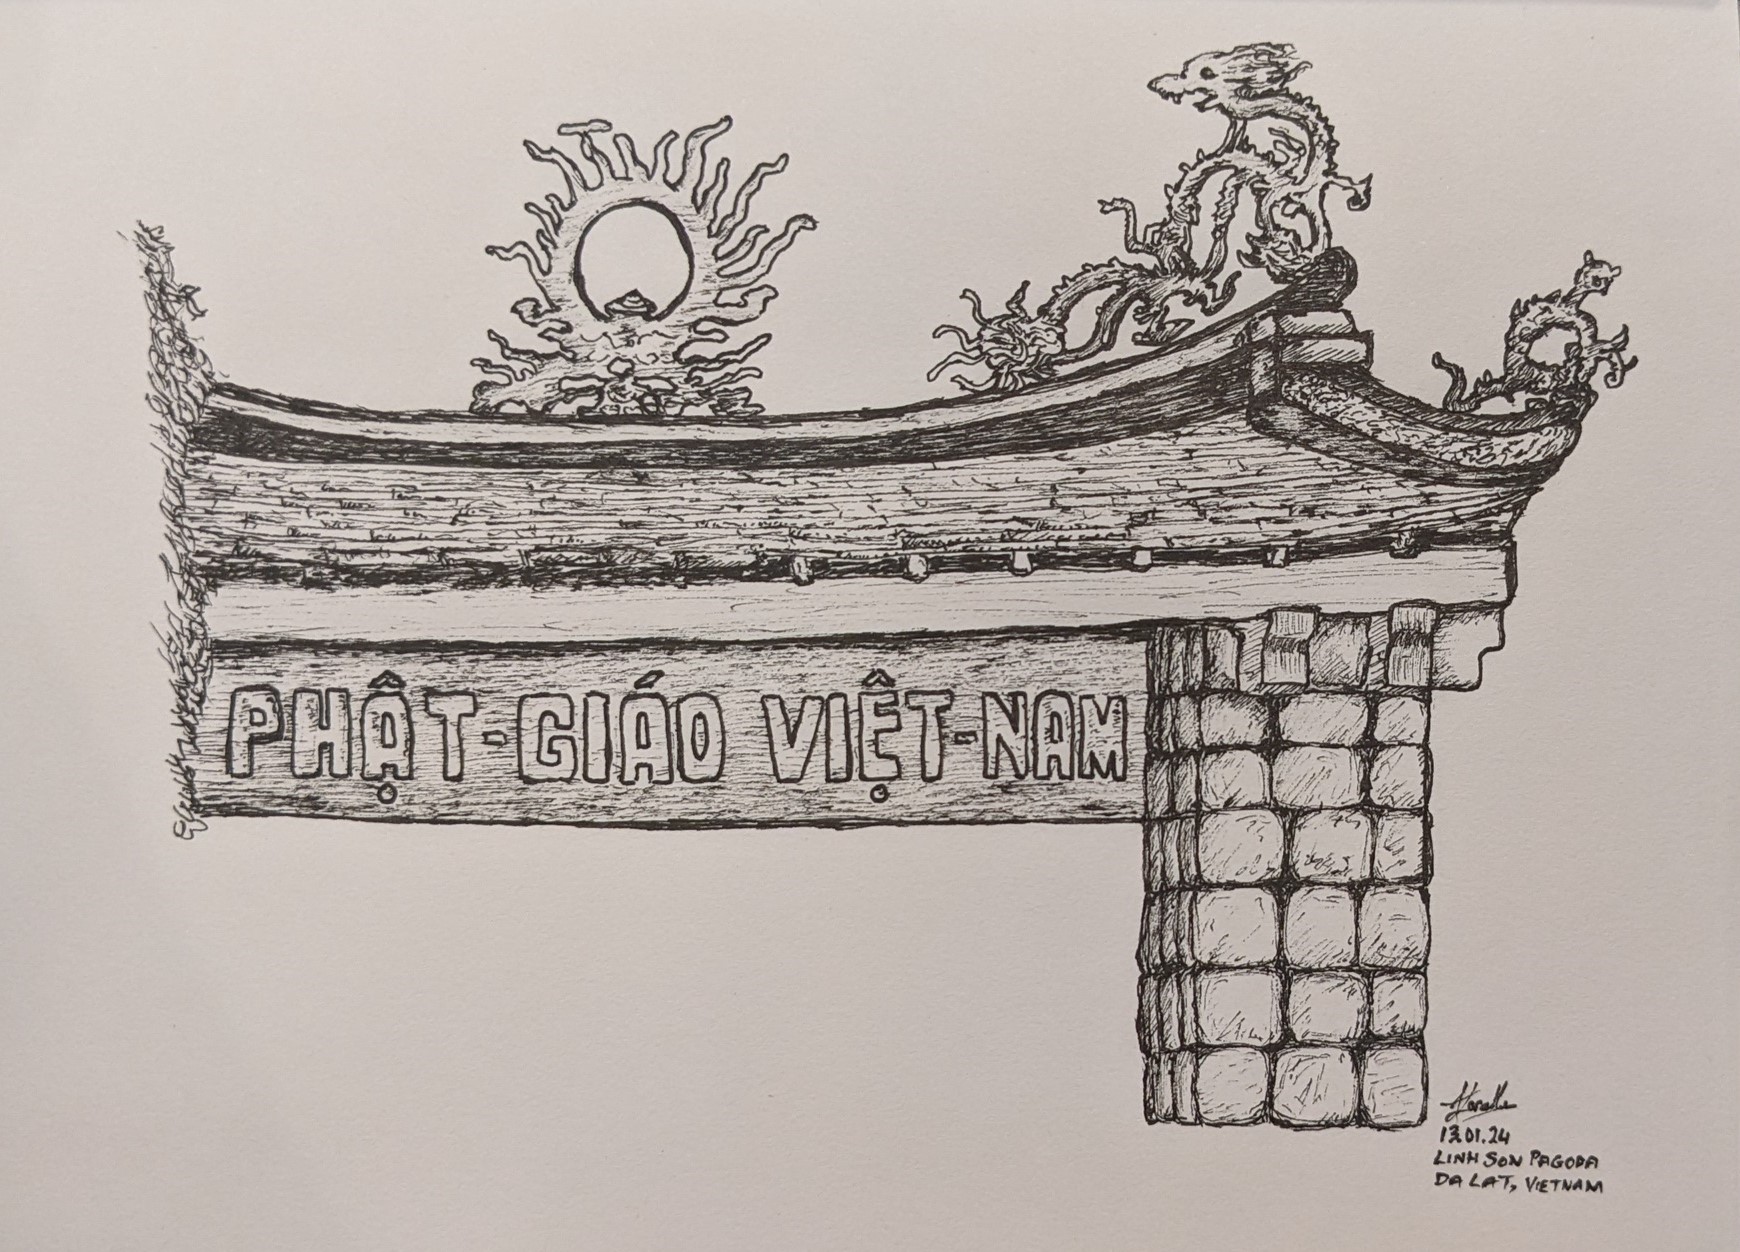 PHẬT-GIÁO VIỆT-NAM
13.01.24
LINH SON PAGODA
DA LAT, VIETNAM